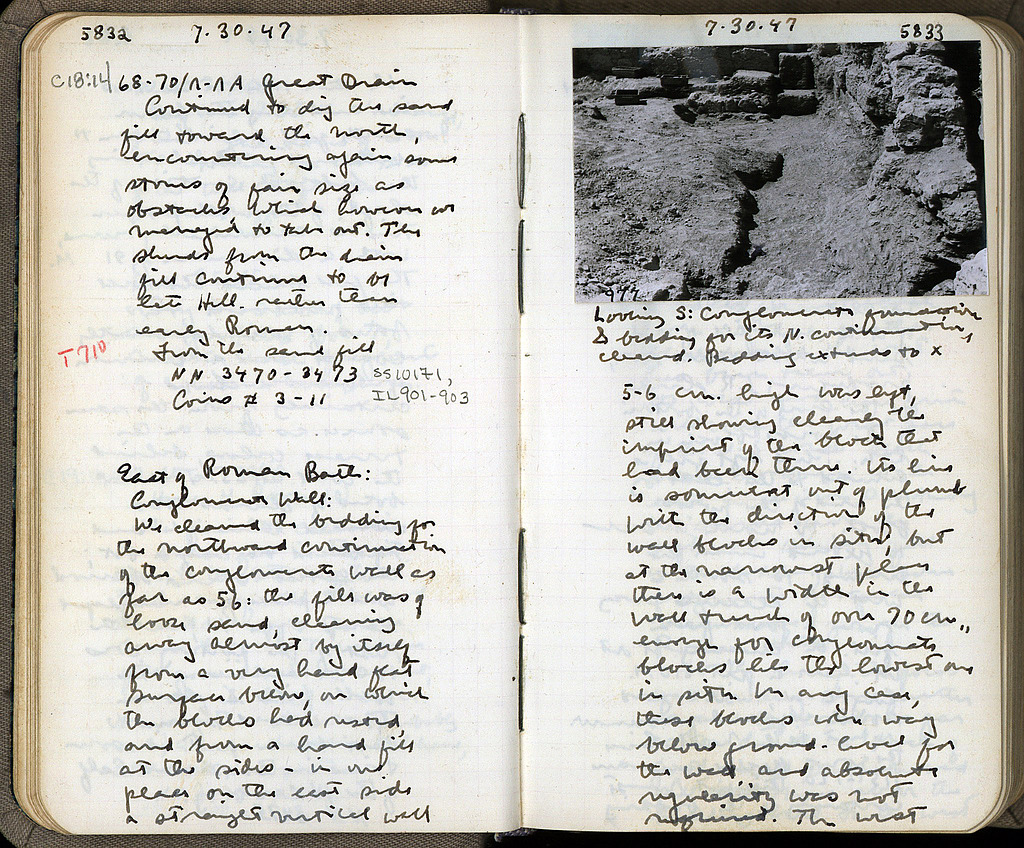 5832
7·30·47
C18:14
68-70/Λ-ΛΑ Great Drain
Continued to dig the sand
fill toward the north,
encountering again some
stones of fair size as
obstacles, which however we
managed to take out. The
sherds from the drain
fill continue to be
late Hell. rather than
early Roman.
T 710
From the sand fill
NN 3470-3473 SS10171,
Coins # 3-11 IL901-903
East of Roman Bath:
Conglomerate Wall:
We cleaned the bedding for
the northward continuation
of the conglomerate wall as
far as 56: the fill was of
loose sand, cleaning
away almost by itself
from a very hard flat
surface below, on which
the blocks had rested,
and from a hard fill
at the sides - in one
place on the east side
a straight vertical wall
7·30·47
5833
Looking S: Conglomerate foundation
& bedding for its N. continuation,
cleaned. Bedding extends to x
5-6 cm. high was left,
still showing clearly the
imprint of the block that
had been there. Its line
is somewhat out of plumb
with the direction of the
wall blocks in situ, but
at the narrowest place
there is a width in the
wall trench of over 70 cm.,
enough for conglomerate
blocks like the lowest one
in situ. In any case,
these blocks were way
below ground-level for
the wall and absolute
regularity was not
required. The west